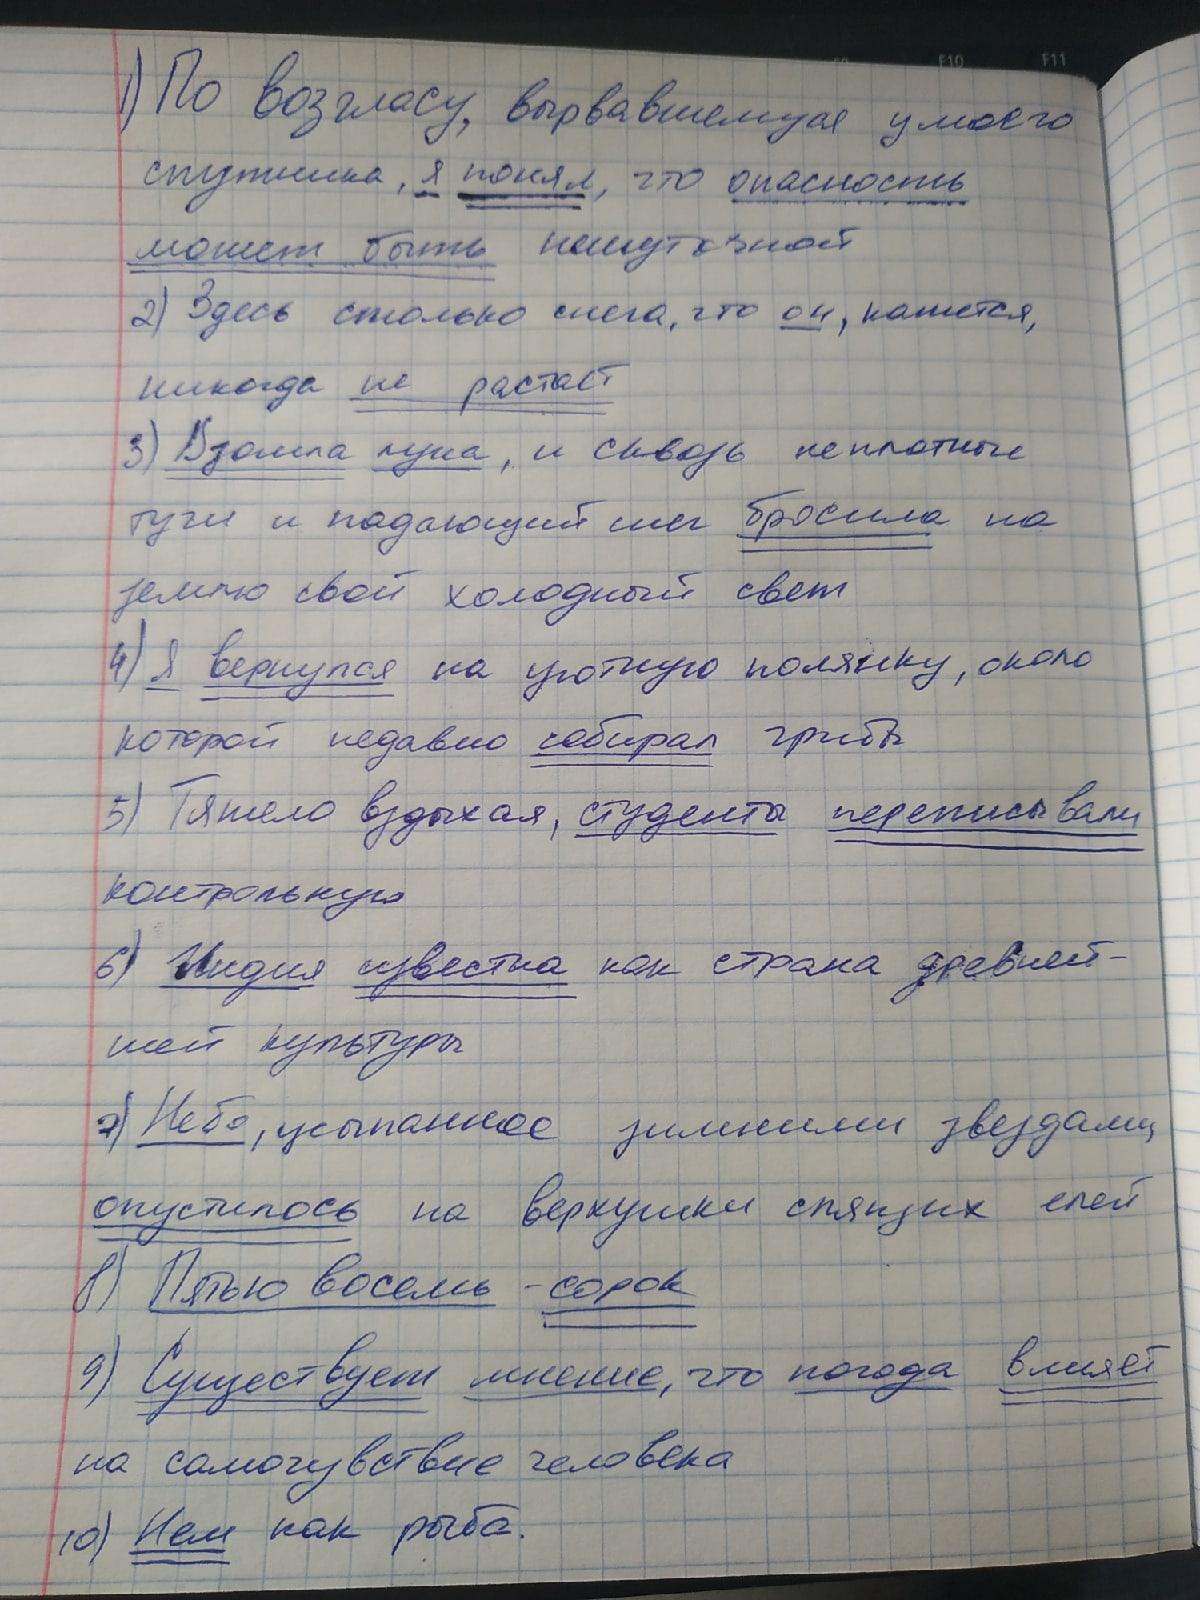 F10 F11
1) По возгласу, вырвавшемуся у моего
спутника, я понял, что опасность
может быть нешуточной
2) Здесь столько снега, что он, кажется,
никогда не растает
3) Взошла луна, и сквозь неплотные
тучи и падающий снег бросила на
землю свой холодный свет
4) Я вернулся на уютную полянку, около
которой недавно собирал грибы
5) Тяжело вздыхая, студенты переписывали
контрольную
6) Индия известна как страна древней-
шей культуры
7) Небо, усыпанное зимними звездами
опустилось на верхушки спящих елей
8) Пятью восемь - сорок
9) Существует мнение, что погода влияет
на самочувствие человека
10) Нем как рыба.